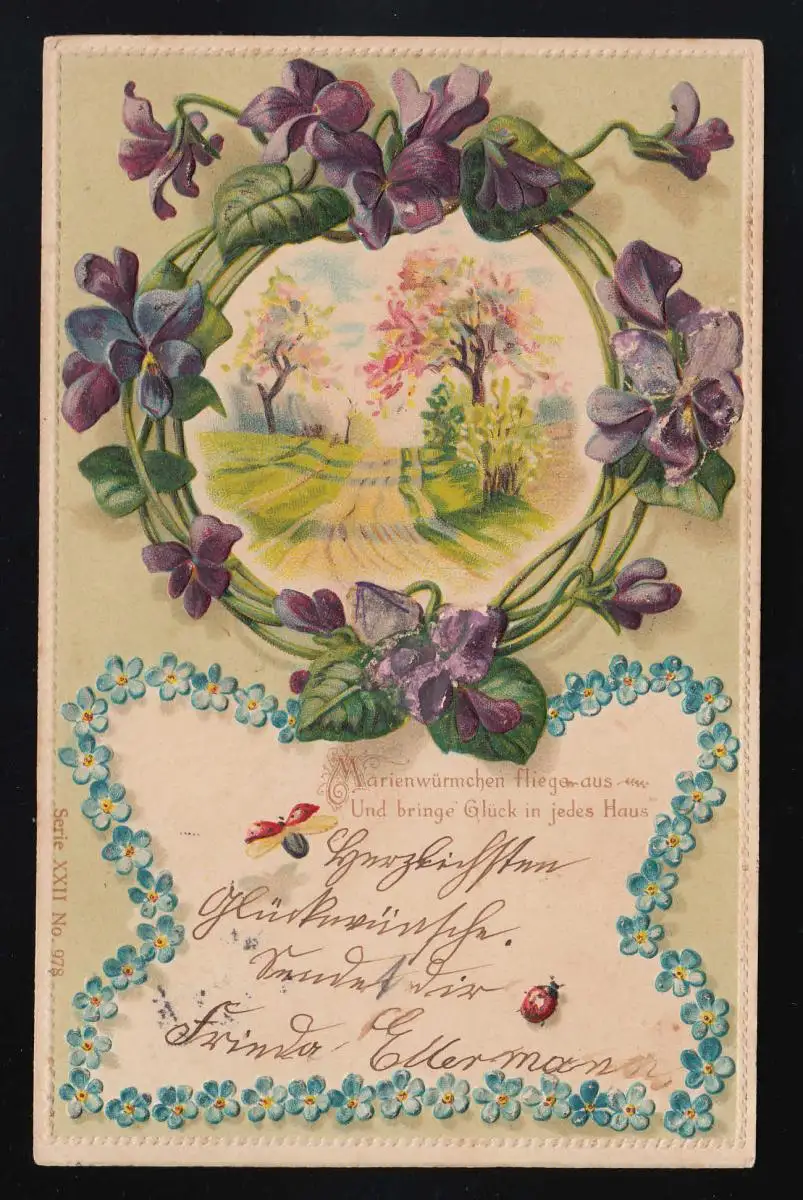 Marienwürmchen fliege aus
Und bringe Glück in jedes Haus
Herzlichsten
Glückwünsche.
Sendet dir
Frieda Ellermann
Serie XXII No. 978